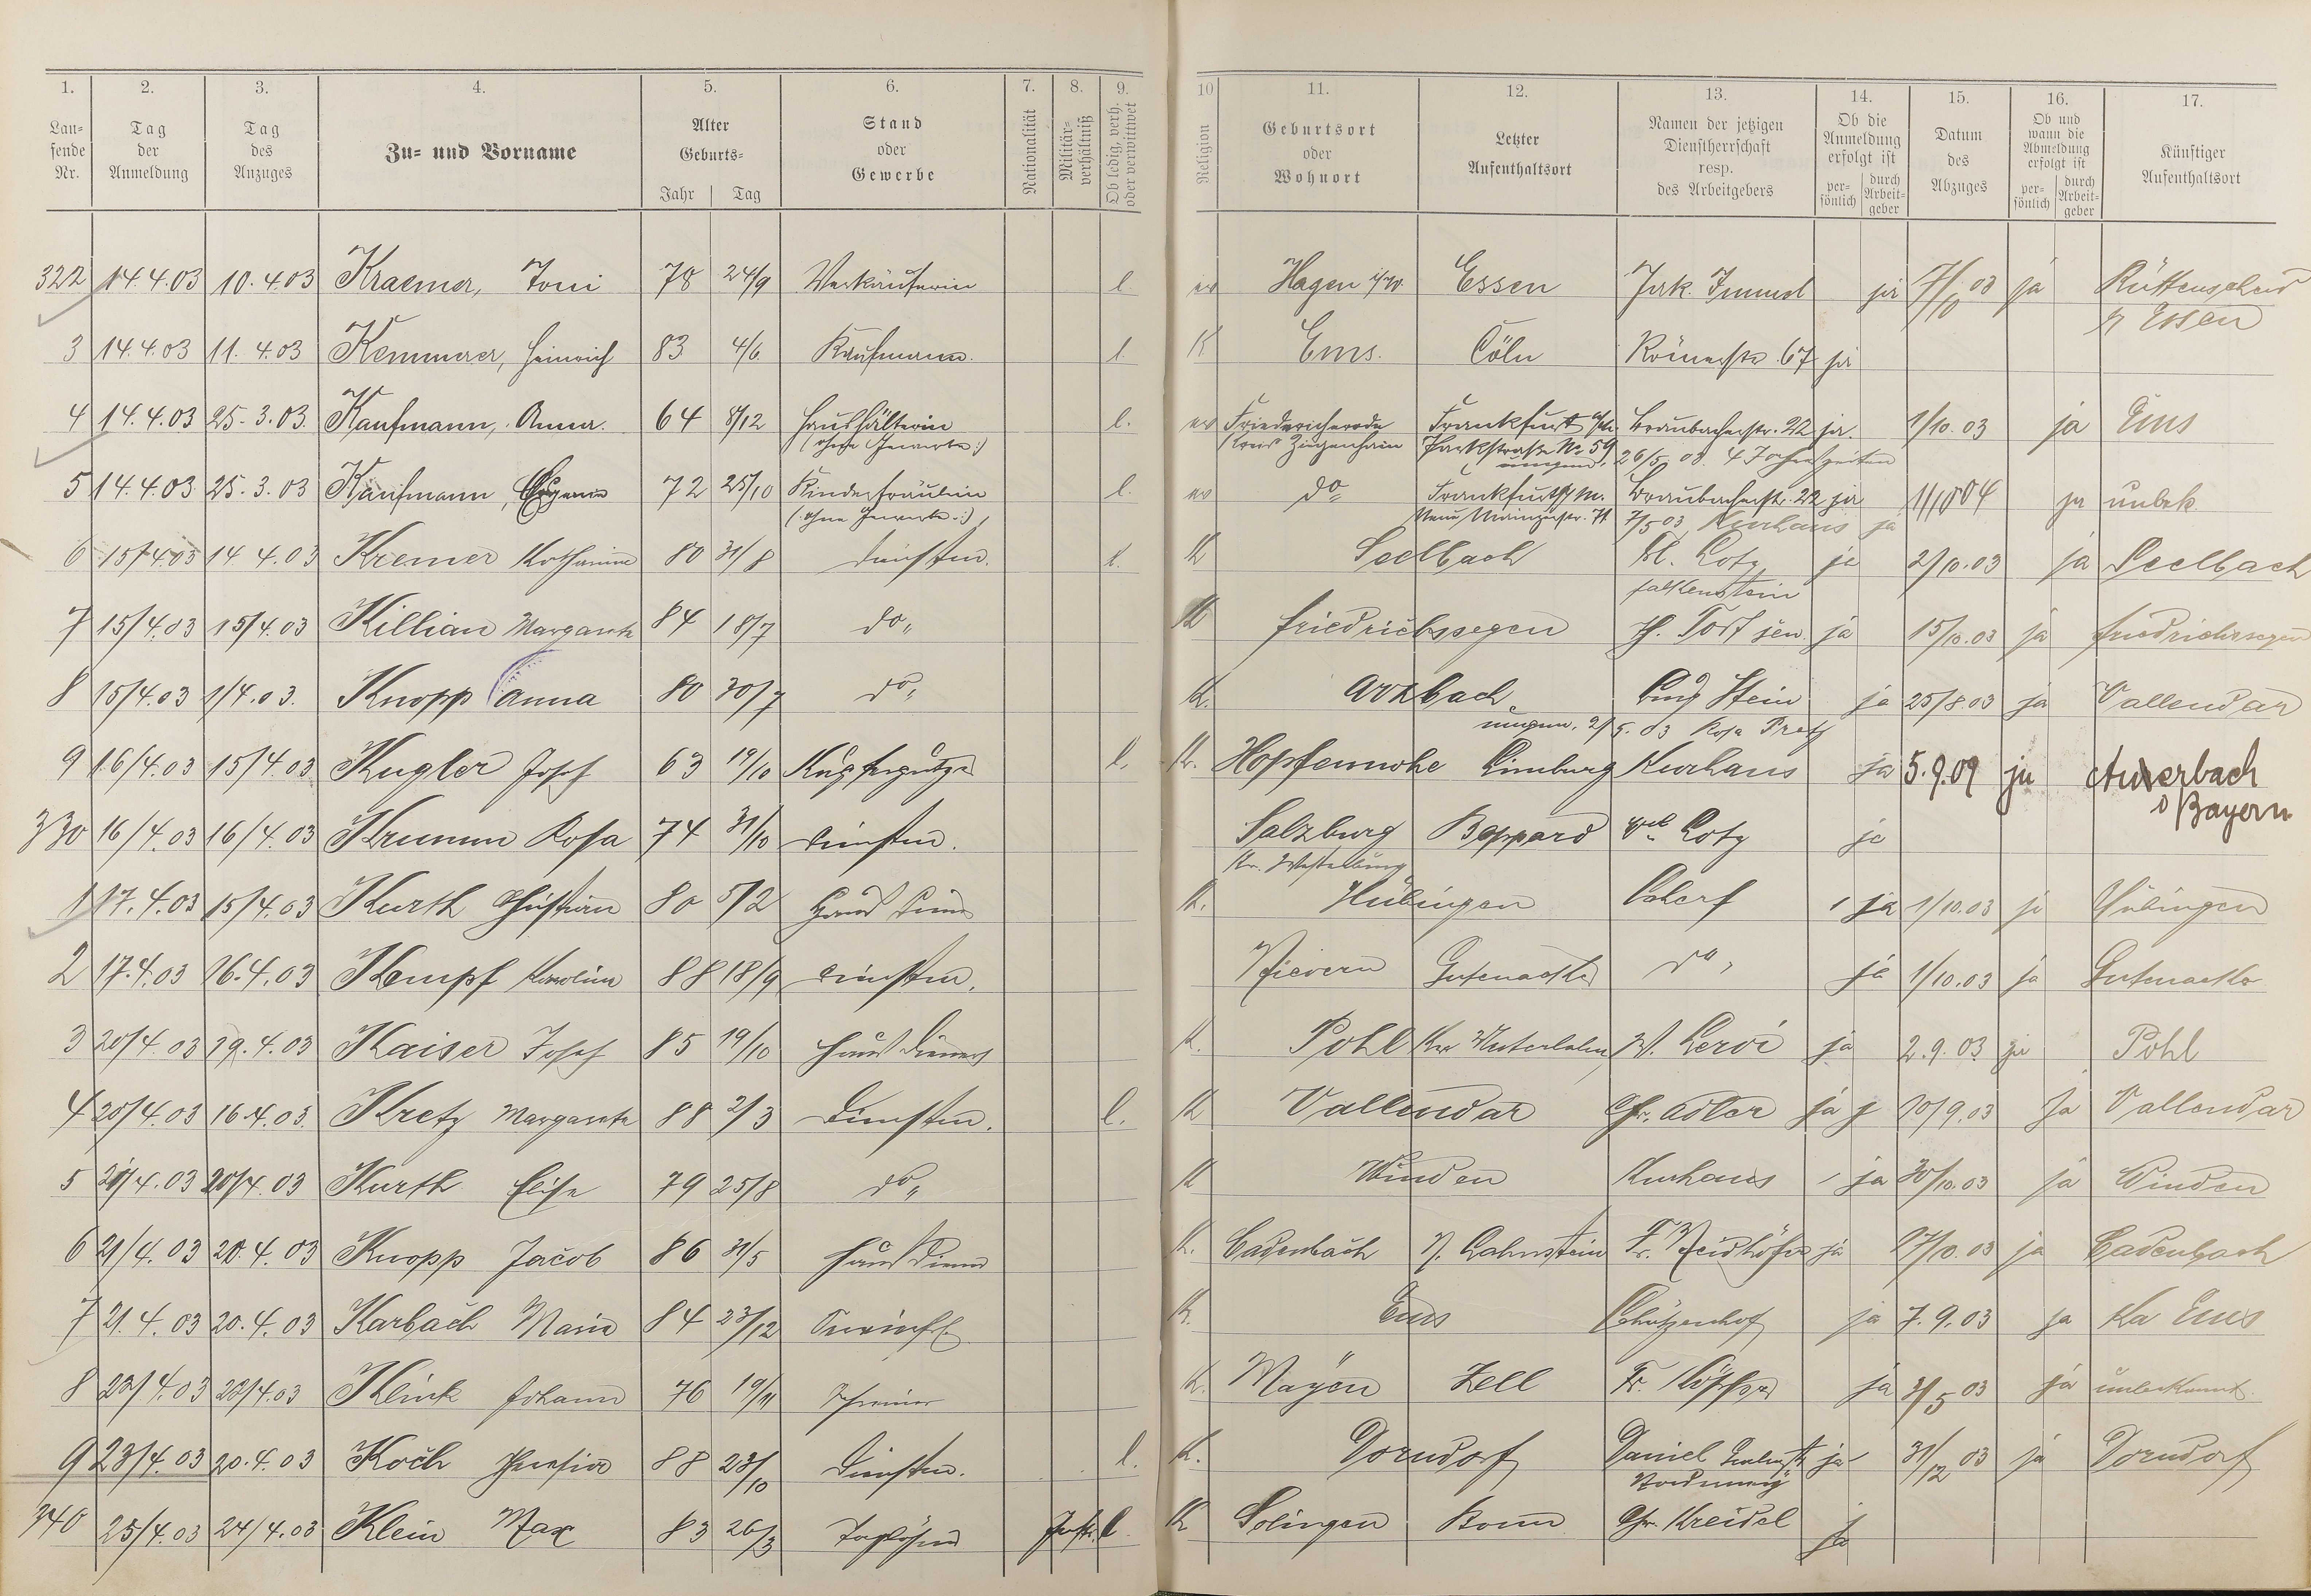 1. 2. 3. 4. 5. 6. 7. 8. 9. 10 11. 12. 13. 14. 15. 16. 17.
Lau-
fende
Nr.
Tag
der
Anmeldung
Tag
des
Anzuges
Zu- und Vorname
Alter
Geburts-
Jahr Tag
Stand
oder
Gewerbe
Nationalität
Militär-
verhältniß
Ob ledig, verh.
oder verwittwet
Religion
Geburtsort
oder
Wohnort
Letzter
Aufenthaltsort
Namen der jetzigen
Dienstherrschaft
resp.
des Arbeitgebers
Ob die
Anmeldung
erfolgt ist
per-
sönlich
durch
Arbeit-
geber
Datum
des
Abzuges
Ob und
wann die
Abmeldung
erfolgt ist
per-
sönlich
durch
Arbeit-
geber
Künftiger
Aufenthaltsort
322 14.4.03 10.4.03 Kraemer, Toni 78 24/9 Verkäuferin l. ev Hagen i/W. Essen ja ja Rüttenscheid
Essen
3 14.4.03 11.4.03 Kemmerer, Heinrich 83 4/6 Kaufmann. l. K Ems. Cöln Römerstr. 67 ja
4 14.4.03 25.3.03. Kaufmann, Anna. 64 8/12 Haushälterin l. ev Friedericherode Frankfurt a/M. Braubacherstr. 22 ja. 1/10.03 ja Ems
(ohne Gewerbe:) Kreis Ziegenhain Parkstraße No 59 26/5 03. 4 Jahreszeiten
5 14.4.03 25.3.03 Kaufmann, Eugenie 72 25/10 Kinderfräulein l. ev do Frankfurt/M. Braubacherstr. 22 ja ja unbek
(ohne Gewerbe:) Neue Mainzerstr. 71 7/5 03 Kurhaus ja
6 15/4.03 14.4.03 Kremer Katharina 80 31/8 Dienstm. l. K Seelbach Lotz ja 2/10.03 ja Seelbach
Falkenstein
7 15/4.03 15/4.03 Killian Margareta 84 18/7 do„ K Friedrichssegen ja 15/10.03 ja Friedrichssegen
8 15/4.03 1/4.03. Knopp Anna 80 30/7 do„ K. Arzbach Aug Stein ja 25/8.03 ja Vallendar
9 16/4.03 15/4.03 Kugler Josef 63 19/10 Kupferputzer l. K. Hopfennohe Limburg Kurhaus ja 5.9.09 ja Auerbach
Bayern
330 16/4.03 16/4.03 Krumm Rosa 74 31/10 Dienstm. Salzburg Boppard Lotz ja
Kr. Westerburg
1 17.4.03 15/4.03 Kurth Christian 80 5/2 Haus Diener K. Hübingen ja 1/10.03 ja Hübingen
2 17.4.03 16.4.03 Kempf Karolina 88 18/9 Dienstm. Nievern Gutenacker do„ ja 1/10.03 ja Gutenacker
3 20/4.03 19.4.03 Kaiser Josef 85 19/10 Haus Diener K. Pohl Kr. Unterlahn W. Leroi ja 2.9.03 ja Pohl
4 20/4.03 16.4.03. Kretz Margareta 88 2/3 Dienstm. l. K Vallendar Chr. Adler ja 10/9.03 Ja Vallendar
5 20/4.03 20/4.03 Kurth Elise 79 25/8 do„ K Winden Kurhaus ja 30/10.03 ja Winden
6 21/4.03 20.4.03 Knopp Jacob 86 31/5 Haus Diener K. Cadenbach N. Lahnstein Fr. Neidhöfer ja 27/10.03 ja Cadenbach
7 21.4.03 20.4.03 Karbach Maria 84 23/12 K. Ems Schützenhof ja 7.9.03 ja Ems
8 22/4.03 22/4.03 Klink Johann 76 19/11 Schreiner K. Mayen Zell ja 3/5 03 ja unbekannt.
9 23/4.03 20.4.03 Koch 88 23/10 Dienstm. l. K. Dorndorf Daniel ja 31/12 03 ja Dorndorf
340 25/4.03 24/4.03 Klein Max 83 26/3 Taglöhner l. K Solingen Bonn Chr. Kreidel ja